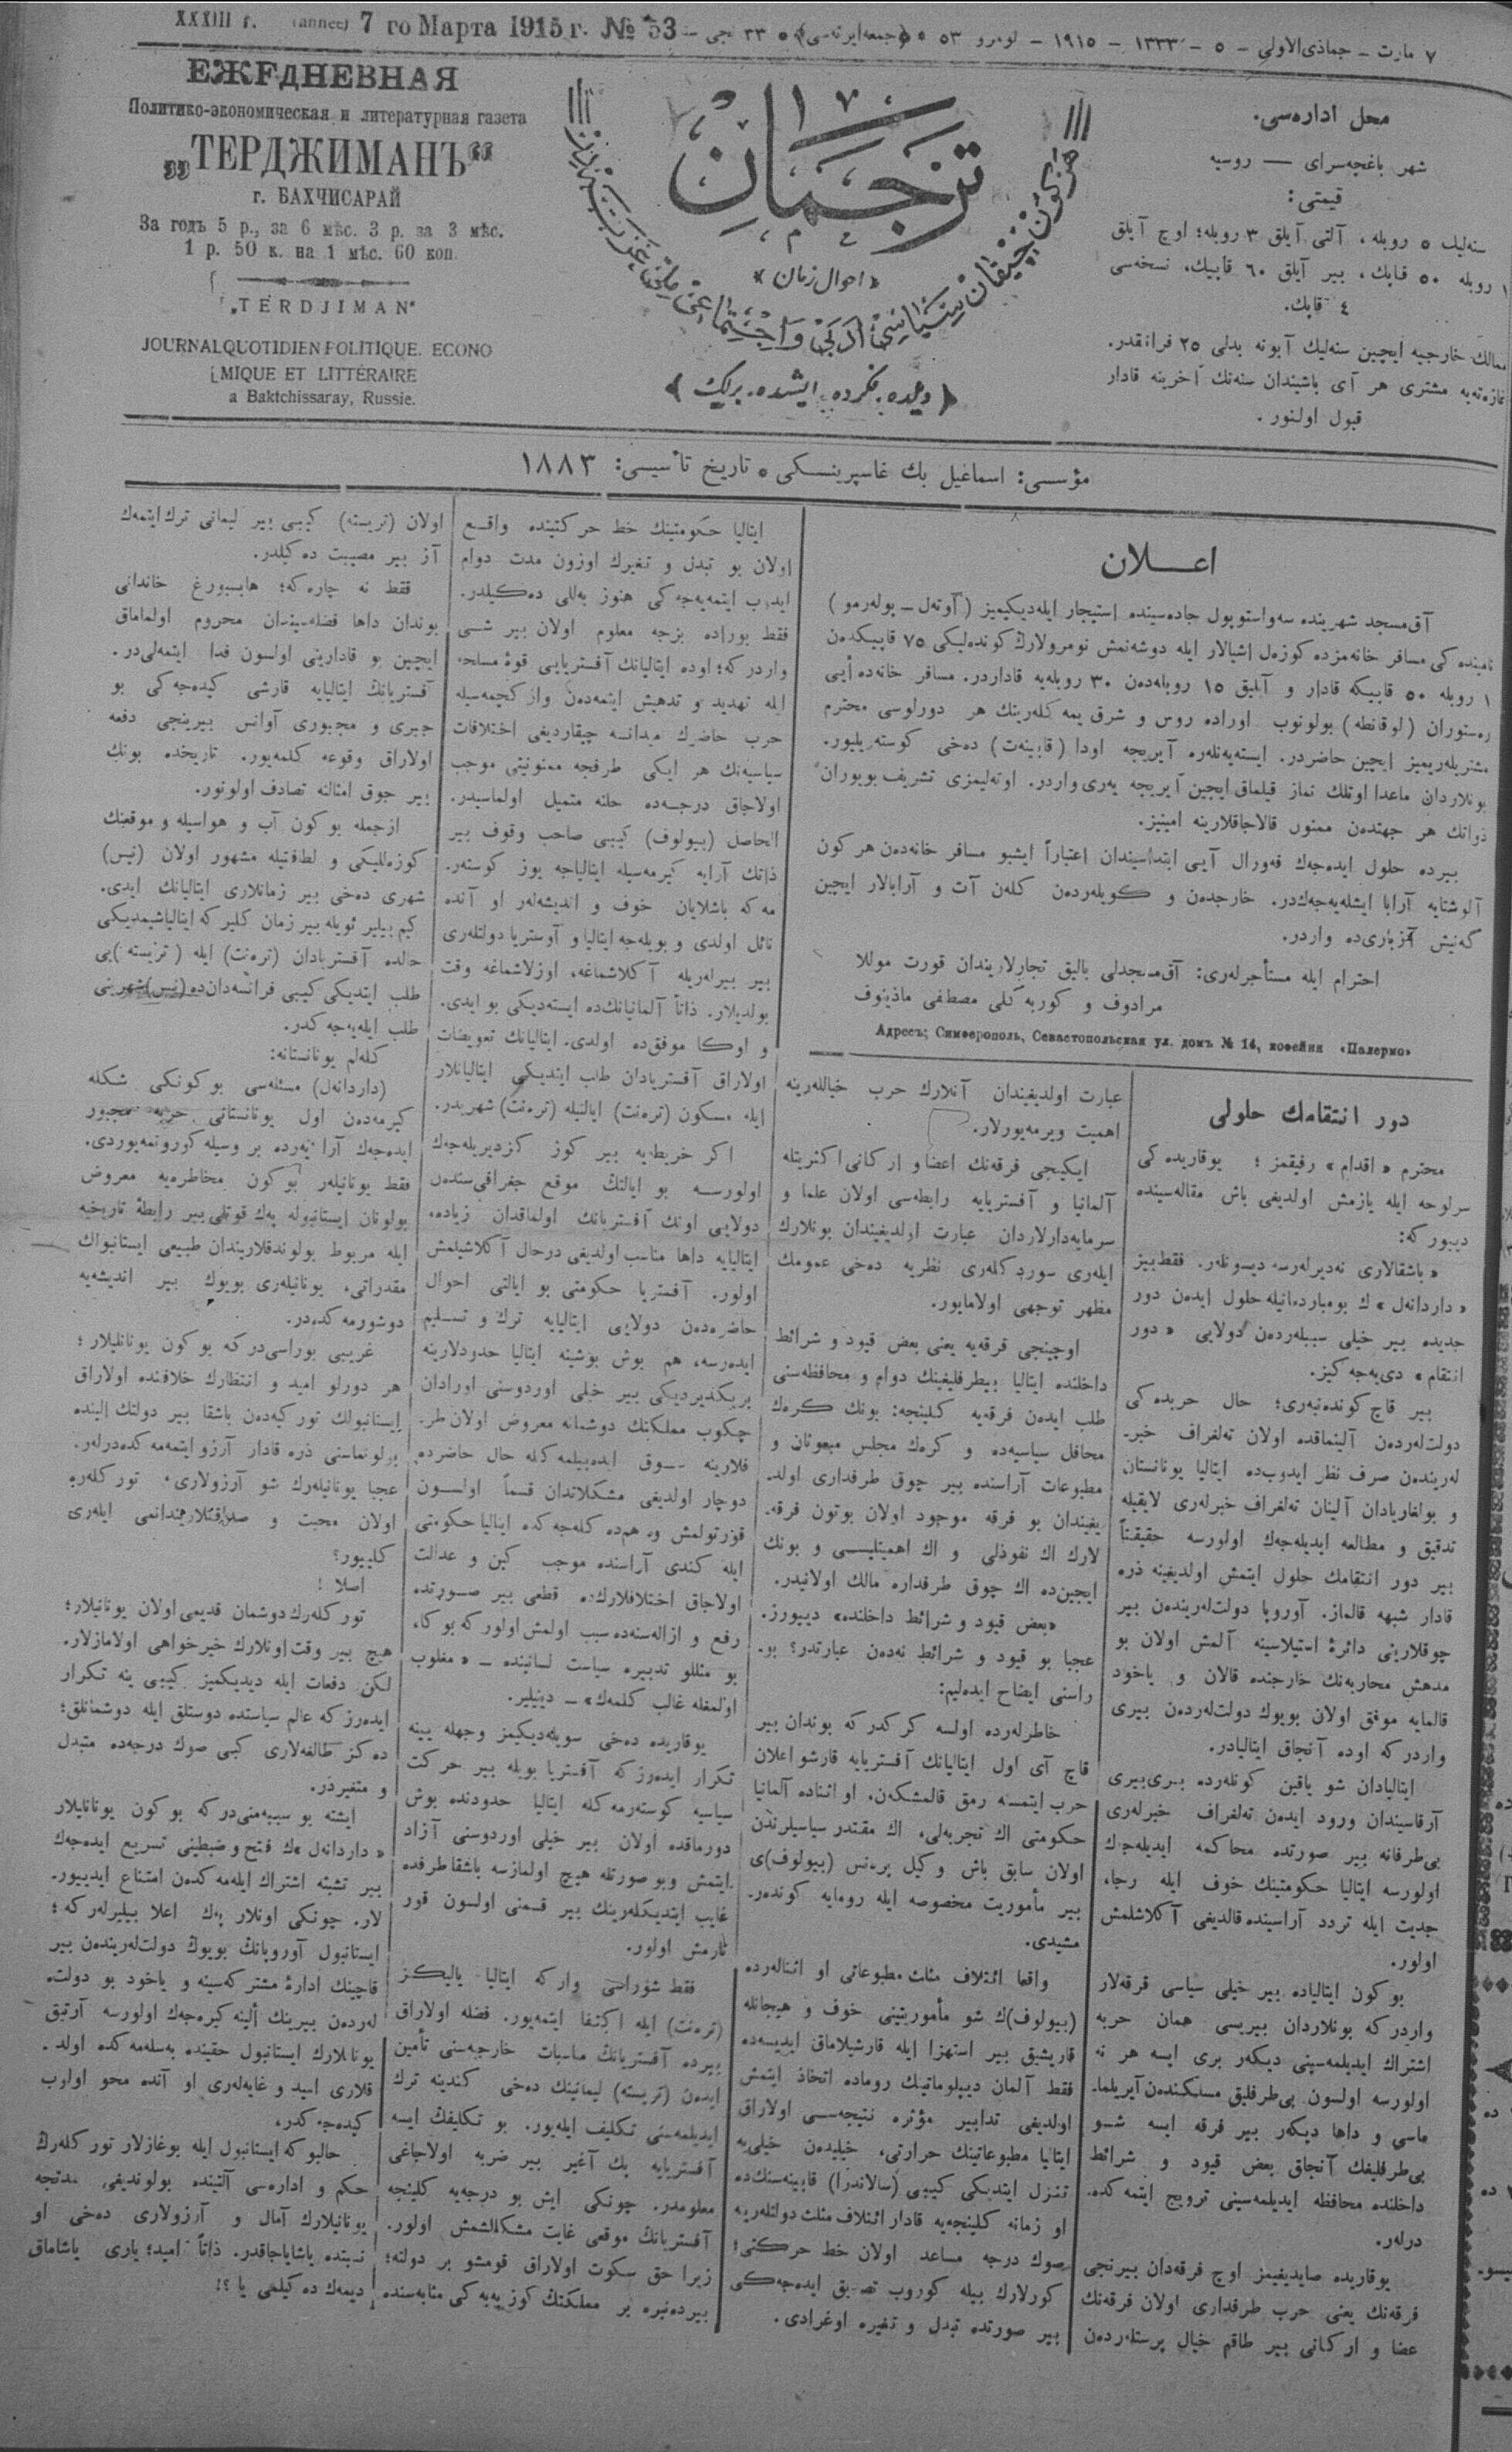 XXXIII г. (année) 7 го Марта 1915 г. № 53
٧ مارت ــ جماذی‌الاولی ــ ٥ ــ ١٣٣٣ ــ ١٩١٥ ــ نومرو ٥٣ ٭ ﴿جمعه‌ایرته‌سی﴾ ٭ ٣٣ نجی
ЕЖЕДНЕВНАЯ
Политико-экономическая и литературная газета
„ТЕРДЖИМАНЪ“
г. БАХЧИСАРАЙ
За годъ 5 р., за 6 мѣс. 3 р. за 3 мѣс.
1 р. 50 к. на 1 мѣс. 60 коп.
„TERDJIMAN“
JOURNAL QUOTIDIEN POLITIQUE. ECONO
MIQUE ET LITTÉRAIRE
a Baktchissaray, Russie.
ترجمان
«احوال زمان»
هر کون چیقان سیاسی، ادبی و اجتماعی ملی غزته‌در
﴿دیلده، فکرده، ایشده، برلك﴾
محل اداره‌سی.
شهر باغچه‌سرای — روسیه
قیمتی:
سنه‌لیك ٥ روبله، آلتی آیلق ٣ روبله؛ اوچ آیلق
١ روبله ٥٠ قاپك، بیر آیلق ٦٠ قاپیك، نسخه‌سی
٤ قاپك.
ممالك خارجیه ایچین سنه‌لیك آبونه بدلی ٢٥ فرانقدر.
غازه‌ته‌یه مشتری هر آی باشیندان سنه‌نك آخرینه قادار
قبول اولنور.
مؤسسی: اسماعیل بك غاسپرینسکی ٭ تاریخ تأسیسی: ١٨٨٣
اعــلان
آق‌مسجد شهرینده سه‌واستوپول جاده‌سینده استیجار ایله‌دیکیمیز (آوته‌ل ــ بوله‌رمو)
نامینده‌کی مسافر خانه‌مزده کوزه‌ل اشیالار ایله دوشه‌نمش نومرولارك کونده‌لیکی ٧٥ قاپیکدن
١ روبله ٥٠ قاپیکه قادار و آیلیق ١٥ روبله‌دن ٣٠ روبله‌یه قاداردر. مسافر خانه‌ده أیی
ره‌ستوران (لوقانطه) بولونوب اوراده روس و شرق یمه‌كله‌رینك هر دورلوسی محترم
مشتریله‌ریمیز ایچین حاضردر. ایسته‌یه‌نله‌ره آیریجه اودا (قابینه‌ت) ده‌خی کوسته‌ریلیور.
بونلاردان ماعدا اوتلك نماز قیلماق ایچین آیریجه یه‌ری واردر. اوته‌لیمزی تشریف بویوران
ذواتك هر جهتدن ممنون قالاجاقلارینه امینیز.
بیرده حلول ایده‌جك فه‌ورال آیی ابتداسیندان اعتباراً ایشبو مسافر خانه‌دن هر کون
آلوشتایه آرابا ایشله‌یه‌جه‌کدر. خارجدن و کویله‌ردن کله‌ن آت و آرابالار ایچین
که‌نیش آزباری‌ده واردر.
احترام ایله مستأجرلەری: آق‌مسجدلی بالیق تجارلاریندان قورت موللا
مرادوف و کوربه‌کلی مصطفی ماذینوف
Адресъ; Симферополь, Севастопольская ул. домъ № 14, кофейня «Палермо»
دور انتقامك حلولی
محترم «اقدام» رفیقمز ؛ یوقاریده‌کی
سرلوحه ایله یازمش اولدیغی باش مقاله‌سینده
دییورکه:
«باشقالاری نه‌دیرله‌رسه دیسونلەر. فقط بیز
«داردانه‌ل»ك بومباردمانیله حلول ایده‌ن دور
جدیده بیر خیلی سببله‌ردن دولایی «دور
انتقام» دییه‌جه‌کیز.
بیر قاچ کونده‌نبه‌ری؛ حال حربده‌کی
دولت‌له‌ردن آلینماقده اولان ته‌لغراف خبر-
له‌ریندن صرف نظر ایدوب‌ده ایتالیا یونانستان
و بولغاریادان آلینان ته‌لغراف خبرله‌ری لایقیله
تدقیق و مطالعه ایدیله‌جك اولورسه حقیقتاً
بیر دور انتقامك حلول ایتمش اولدیغینه ذره
قادار شبهه قالماز. آوروپا دولت‌له‌ریندن بیر
چوقلارینی دائرۀ استیلاسینه آلمش اولان بو
مدهش محاربه‌نك خارجنده قالان و یاخود
قالمایه موفق اولان بویوك دولت‌له‌ردن بیری
واردرکه اوده آنجاق ایتالیادر.
ایتالیادان شو یاقین کونله‌رده بیری‌بیری
آرقاسیندان ورود ایدن ته‌لغراف خبرله‌ری
بی‌طرفانه بیر صورتده محاکمه ایدیله‌جك
اولورسه ایتالیا حکومتینك خوف ایله رجا،
جدیت ایله تردد آراسینده قالدیغی آکلاشلمش
اولور.
بوکون ایتالیاده بیر خیلی سیاسی فرقه‌لار
واردرکه بونلاردان بیریسی همان حربه
اشتراك ایدیلمه‌سینی دیکه‌ر بری ایسه هر نه
اولورسه اولسون بی‌طرفلیق مسلکندن آیریلما-
ماسی و داها دیکه‌ر بیر فرقه ایسه شو
بی‌طرفلیفك آنجاق بعض قیود و شرائط
داخلنده محافظه ایدیلمه‌سینی ترویج ایتمه‌کده
درله‌ر.
یوقاریده صایدیغیمز اوچ فرقه‌دان بیرنجی
فرقه‌نك یعنی حرب طرفداری اولان فرقه‌نك
عضا و ارکانی بیر طاقم خیال پرستله‌ردن
عبارت اولدیغیندان آنلارك حرب خیاللەرینه
اهمیت ویرمه‌یورلار.
ایکیجی فرقه‌نك اعضا و ارکانی اکثریتله
آلمانیا و آفستریایه رابطه‌سی اولان علما و
سرمایه‌دارلاردان عبارت اولدیغیندان بونلارك
ایله‌ری سوردکله‌ری نظریه ده‌خی عمومك
مظهر توجهی اولامایور.
اوچینجی فرقه‌یه یعنی بعض قیود و شرائط
داخلنده ایتالیا بیطرفلیغینك دوام و محافظه‌سنی
طلب ایده‌ن فرقه‌یه کلینجه: بونك کره‌ك
محافل سیاسیه‌ده و کره‌ك مجلس مبعوثان و
مطبوعات آراسنده بیر چوق طرفداری اولد-
یغیندان بو فرقه موجود اولان بوتون فرقه-
لارك اك نفوذلی و اك اهمیتلیسی و بونك
ایچین‌ده اك چوق طرفداره مالك اولانیدر.
«بعض قیود و شرائط داخلنده» دییورز.
عجبا بو قیود و شرائط نه‌دن عبارتدر؟ بو-
راسنی ایضاح ایده‌لیم:
خاطرله‌رده اولسه کرکدرکه بوندان بیر
قاچ آی اول ایتالیانك آفستریایه قارشو اعلان
حرب ایتمسنه رمق قالمشکن، او اثناده آلمانیا
حکومتی اك تجربه‌لی، اك مقتدر سیاسیلرندن
اولان سابق باش وکیل پره‌نس (بیولوف)ی
بیر مأموریت مخصوصه ایله رومایه کونده‌ر-
مشیدی.
واقعا ائتلاف مثلث مطبوعاتی او اثنالەرده
(بیولوف)ك شو مأموریتینی خوف و هیجانله
قاریشیق بیر استهزا ایله قارشیلاماق ایدیسه‌ده
فقط آلمان دیپلوماتیك روماده اتخاذ ایتمش
اولدیغی تدابیر مؤثره نتیجه‌سی اولاراق
ایتالیا مطبوعاتینك حرارتی، خیلیدن خیلی‌یه
تنزل ایتدیکی کیبی (سالاندرا) قابینه‌سنك‌ده
او زمانه کلینجه‌یه قادار ائتلاف مثلث دولتله‌رینه
صوك درجه مساعد اولان خط حرکتی؛
کورلارك بیله کوروب تصدیق ایده‌جه‌کی
بیر صورتده تبدل و تغیره اوغرادی.
ایتالیا حکومتینك خط حرکتینده واقع
اولان بو تبدل و تغیرك اوزون مدت دوام
ایدوب ایتمه‌یه‌جه‌کی هنوز به‌للی ده‌کیلدر.
فقط بوراده بزجه معلوم اولان بیر شی
واردرکه؛ اوده ایتالیانك آفستریایی قوۀ مسلحه
ایله تهدید و تدهیش ایتمه‌دن واز کچمه‌سیله
حرب حاضرك میدانه چیقاردیغی اختلافات
سیاسیه‌نك هر ایکی طرفجه ممنونیتی موجب
اولاجاق درجه‌ده حلنه متمیل اولماسیدر.
الحاصل (بیولوف) کیبی صاحب وقوف بیر
ذاتك آرایه کیرمه‌سیله ایتالیاجه یوز کوستەر-
مه‌که باشلایان خوف و اندیشه‌لەر او آنده
زائل اولدی و بویله‌جه ایتالیا و آوستریا دولتله‌ری
بیر بیرله‌ریله آکلاشماغه، اوزلاشماغه وقت
بولدیلار. ذاتاً آلمانیانك‌ده ایسته‌دیکی بو ایدی.
و اوکا موفق‌ده اولدی. ایتالیانك تعویضات
اولاراق آفستریادان طلب ایتدیکی ایتالیانلار
ایله مسکون (تره‌نت) ایالتیله (تره‌نت) شهریدر.
اکر خریطه‌یه بیر کوز کزدیریله‌جك
اولورسه بو ایالتك موقع جغرافی‌سندن
دولایی اونك آفستریانك اولماقدان زیاده
ایتالیایه داها مناسب اولدیغی درحال آکلاشیلمش
اولور. آفستریا حکومتی بو ایالتی احوال
حاضره‌دن دولایی ایتالیایه ترك و تسلیم
ایده‌رسه، هم بوش بوشینه ایتالیا حدودلارینه
بریکدیردیکی بیر خیلی اوردوسنی اورادان
چکوب مملکتنك دوشمانه معروض اولان طر-
فلارینه سوق ایده‌بیلمه‌کله حال حاضرده
دوچار اولدیغی مشکلاتدان قسماً اولسون
قورتولمش وهم‌ده کله‌جه‌کده ایتالیا حکومتی
ایله کندی آراسنده موجب کین و عداوت
اولاجاق اختلافلارك‌ده قطعی بیر صورتده
رفع و ازاله‌سنه‌ده سبب اولمش اولورکه بوکا،
بو مثللو تدبیره سیاست لسانینده — «مغلوب
اولمغله غالب کلمه‌ك» — دینیلیر.
یوقاریده ده‌خی سویله‌دیکیمز وجهله یینه
تکرار ایده‌رزکه آفستریا بویله بیر حرکت
سیاسیه کوسته‌رمه‌کله ایتالیا حدودنده بوش
دورماقده اولان بیر خیلی اوردوسنی آزاد
ایتمش وبو صورتله هیچ اولمازسه باشقا طرفده
غایب ایتدیکله‌رینك بیر قسمنی اولسون قور
تارمش اولور.
فقط شوراسی وارکه ایتالیا یالیکز
(تره‌نت) ایله اکتفا ایتمه‌یور. فضله اولاراق
بیرده آفستریانك مناسبات خارجه‌سنی تأمین
ایده‌ن (تریسته) لیمانینك ده‌خی کندینه ترك
ایدیلمه‌سنی تکلیف ایله‌یور. بو تکلیفك ایسه
آفستریایه پك آغیر بیر ضربه اولاجاغی
معلومدر. چونکی ایش بو درجه‌یه کلینجه
آفستریانك موقعی غایت مشکللشمش اولور.
زیرا حق سکوت اولاراق قومشو بر دولته؛
بیرده‌نبره بر مملکتك کوز به‌به‌کی مثابه‌سنده
اولان (تریسته) کیبی بیر لیمانی ترك ایتمه‌ك
آز بیر مصیبت ده‌کیلدر.
فقط نه چاره‌که؛ هابسبورغ خاندانی
بوندان داها فضله‌سیندان محروم اولماماق
ایچین بو قادارینی اولسون فدا ایتمه‌لی‌در.
آفستریانك ایتالیایه قارشی کیده‌جه‌کی بو
جبری و مجبوری آوانس بیرینجی دفعه
اولاراق وقوعه کلمه‌یور. تاریخده بونك
بیر چوق امثالنه تصادف اولونور.
ازجمله بوکون آب و هواسیله و موقعنك
کوزه‌للیکی و لطافتیله مشهور اولان (نیس)
شهری ده‌خی بیر زمانلاری ایتالیانك ایدی.
کیم بیلیر ئویله بیر زمان کلیرکه ایتالیاشیمدیکی
حالده آفستریادان (تره‌نت) ایله (تریسته)یی
طلب ایتدیکی کیبی فرانسه‌دان‌ده (نیس) شهرینی
طلب ایله‌یه‌جه‌کدر.
کله‌لم یونانستانه:
(داردانه‌ل) مسئله‌سی بوکونکی شکله
کیرمه‌دن اول یونانستانی حربه مجبور
ایده‌جك آرا یه‌رده بر وسیله کورونمه‌یوردی.
فقط یونانیلەر بوکون مخاطره‌یه معروض
بولونان ایستانبوله پك قوتلی بیر رابطۀ تاریخیه
ایله مربوط بولوندقلاریندان طبیعی ایستانبولك
مقدراتی، یونانیله‌ری بویوك بیر اندیشه‌یه
دوشورمه‌کده‌در.
غریبی بوراسی‌درکه بوکون یونانلیلار؛
هر دورلو امید و انتظارك خلافنده اولاراق
ایستانبولك تورکیه‌دن باشقا بیر دولتك الینده
بولونماسنی ذره قادار آرزو ایتمه‌مه‌کده‌درلەر.
عجبا یونانیله‌رك شو آرزولاری، تورکله‌ره
اولان محبت و صداقتلاریندانمی ایله‌ری
کلییور؟
اصلا !
تورکله‌رك دوشمان قدیمی اولان یونانیلار؛
هیچ بیر وقت اونلارك خیرخواهی اولامازلار.
لکن دفعات ایله دیدیکمیز کیبی ینه تکرار
ایده‌رزکه عالم سیاستده دوستلق ایله دوشمانلق؛
ده‌کز طالغه‌لاری کبی صوك درجه‌ده متبدل
و متغیردر.
ایشته بو سببه‌منی‌درکه بوکون یونانیلار
«داردانه‌ل»ك فتح و ضبطینی تسریع ایده‌جك
بیر تشبثه اشتراك ایله‌مه‌کدن امتناع ایدییور-
لار. چونکی اونلار پك اعلا بیلیرله‌رکه؛
ایستانبول آوروپانك بویوك دولت‌له‌ریندن بیر
قاچینك ادارۀ مشترکه‌سینه و یاخود بو دولت-
له‌ردن بیرینك ألینه کیره‌جك اولورسه آرتیق
یونانلارك ایستانبول حقینده به‌سله‌مه‌کده اولد-
قلاری امید و غایه‌له‌ری او آنده محو اولوب
کیده‌جه‌کدر.
حالبوکه ایستانبول ایله بوغازلار تورکله‌رك
حکم و اداره‌سی آلتینده بولوندیغی مدتجه
یونانیلارك آمال و آرزولاری ده‌خی او
نسبتده یاشایاجاقدر. ذاتاً امید؛ یاری یاشاماق
دیمه‌ك ده‌کیلمی یا ؟!